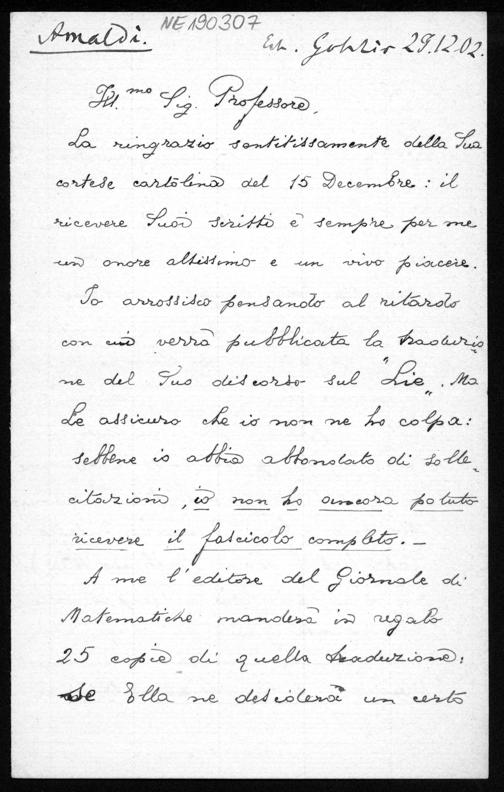 Amaldi.
NE190307
29.12.02.
Ill.mo Sig. Professore,
La ringrazio sentitissamente della Sua
cortese cartolina del 15 Decembre: il
ricevere Suoi scritti è sempre per me
un onore altissimo e un vivo piacere.
Io arrossisco pensando al ritardo
con cui verrà pubblicata la traduzio-
ne del Suo discorso sul "Lie". Ma
Le assicuro che io non ne ho colpa:
sebbene io abbia abbondato di solle-
citazioni, io non ho ancora potuto
ricevere il fascicolo completo. —
A me l'editore del Giornale di
Matematiche manderà in regalo
25 copie di quella traduzione:
se Ella ne desidera un certo